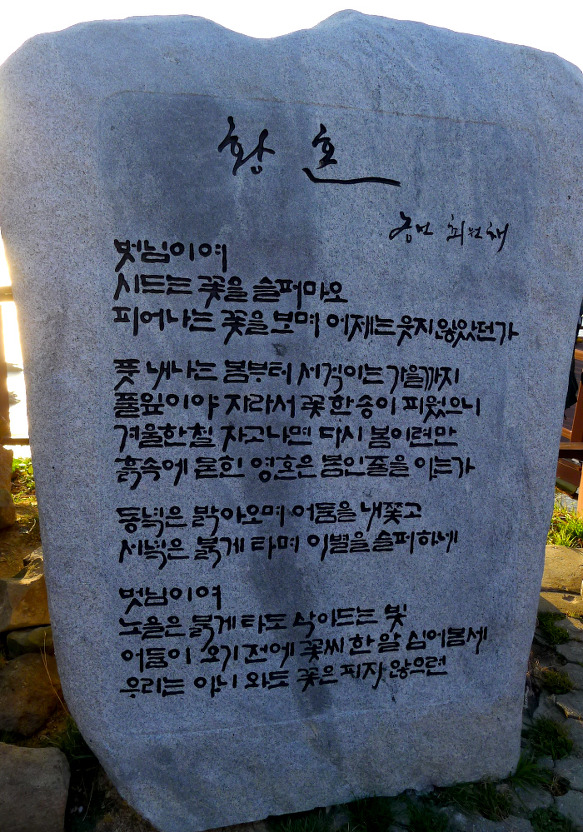 황혼
최원채
벗님이여
시드는 꽃을 슬퍼마오
피어나는 꽃을 보며 어제는 웃지 않았던가
풋 내나는 봄부터 서걱이는 가을까지
풀잎이야 자라서 꽃 한 송이 피웠으니
겨울한철 자고나면 다시 봄이련만
흙속에 묻힌 영혼은 봄인줄을 아는가
동녘은 밝아오며 어둠을 내쫓고
서녘은 붉게 타며 이별을 슬퍼하네
벗님이여
노을은 붉게 타도 삭아드는 빛
어둠이 오기 전에 꽃씨 한 알 심어봄세
우리는 아니 와도 꽃은 피지 않으련